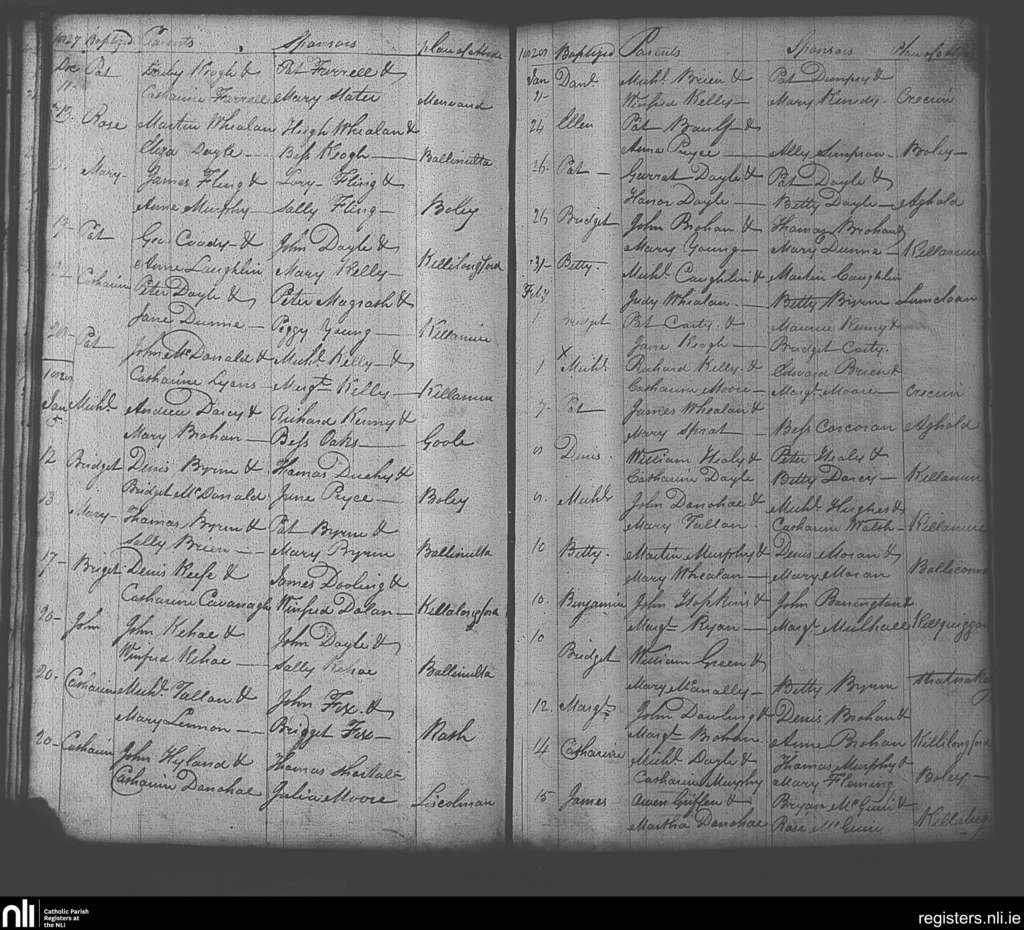 1827 Baptized Parents Sponsors place of Abode
Dec Pat Darby Keogh & Pat Farrell &
11 Catharine Farrell Mary Slater
13 Rose Martin Whealan Hugh Whealan &
Eliza Doyle Bess Keogh Ballinulta
Mary James Fling & Lory Fling &
Anne Murphy Sally Fling Boley
Pat Geo. Coady & John Doyle &
Anne Laughlin Mary Kelly Killilongford
Catharine Peter Doyle & Peter Magrath &
Jane Dunne Peggy Young Killamin
Pat John McDonald & Michl. Kelly &
Catharine Lyons Margt. Kelly Killamin
1828
Jan Michl. Andrew Darcy & Richard Kenny &
5 Mary Brohan Bess Oaks Goole
12 Bridget Denis Byrne & Thomas Duchy &
Bridget McDonald June Pryce Boley
13 Mary Thomas Byrne & Pat Byrne &
Sally Brien Mary Byrne Ballinulta
17 Briget Denis Keefe & James Dooling &
Catharine Cavanagh Winfred Dolan Killalongford
20 John John Kehoe & John Doyle &
Winfred Kehoe Sally Kehoe Ballinulta
20 Catharine Michl. Tallan & John Fox &
Mary Lennon Bridget Fox Rath
20 Catharin John Hyland & Thomas
Catharine Donohoe Julia Moore Liscolman
1828 Baptized Parents Sponsors
Jan Danl. Michl. Brien & Pat Dempsey &
21 Winfred Kelly Mary Kenedy Crecrin
24 Ellen Pat &
Anne Pryce Ally Simpson Boley
26 Pat Garrat Doyle & Pat Doyle &
Honor Doyle Betty Doyle Aghold
26 Bridget John Brohan & Thomas Brohan &
Mary Young Mary Dunne Killamin
31 Betty Michl. Caughlin & Martin Caughlin
Feby Judy Whealan Betty Byrne
1 Bridget Pat Carty & Maurice Kenny &
Jane Keogh Bridget Carty
X
1 Michl. Richard Kelly & Edward Brien &
Catharine Moore Margt. Moore Crecrin
7 Pat James Whealan &
Mary Sprat Bess Corcoran Aghold
8 Denis William Healy & Peter Healy &
Catharine Doyle Betty Darcy Killamin
8 Michl. John Donohoe & Michl. Hughes &
Mary Tallan Catharine Walsh Killamine
10 Betty Martin Murphy & Denis Moran &
Mary Whealan Mary Moran
10 Benjamin John Hopkins & John Barrington &
Margt. Ryan Margt. Mulhall
10
Bridget William Green &
Mary McAnally Betty Byrne
12 Margt. John Dowling & Denis Brohan &
Margt. Brohan Anne Brohan Killilongford
14 Catharine Michl. Doyle & Thomas Murphy &
Catharine Murphy Mary Fleming Boley
15 James Owen Griffen & Bryan McGuin &
Martha Donohoe Rose McGuin
nli Catholic Parish
Registers at
the NLI
registers.nli.ie